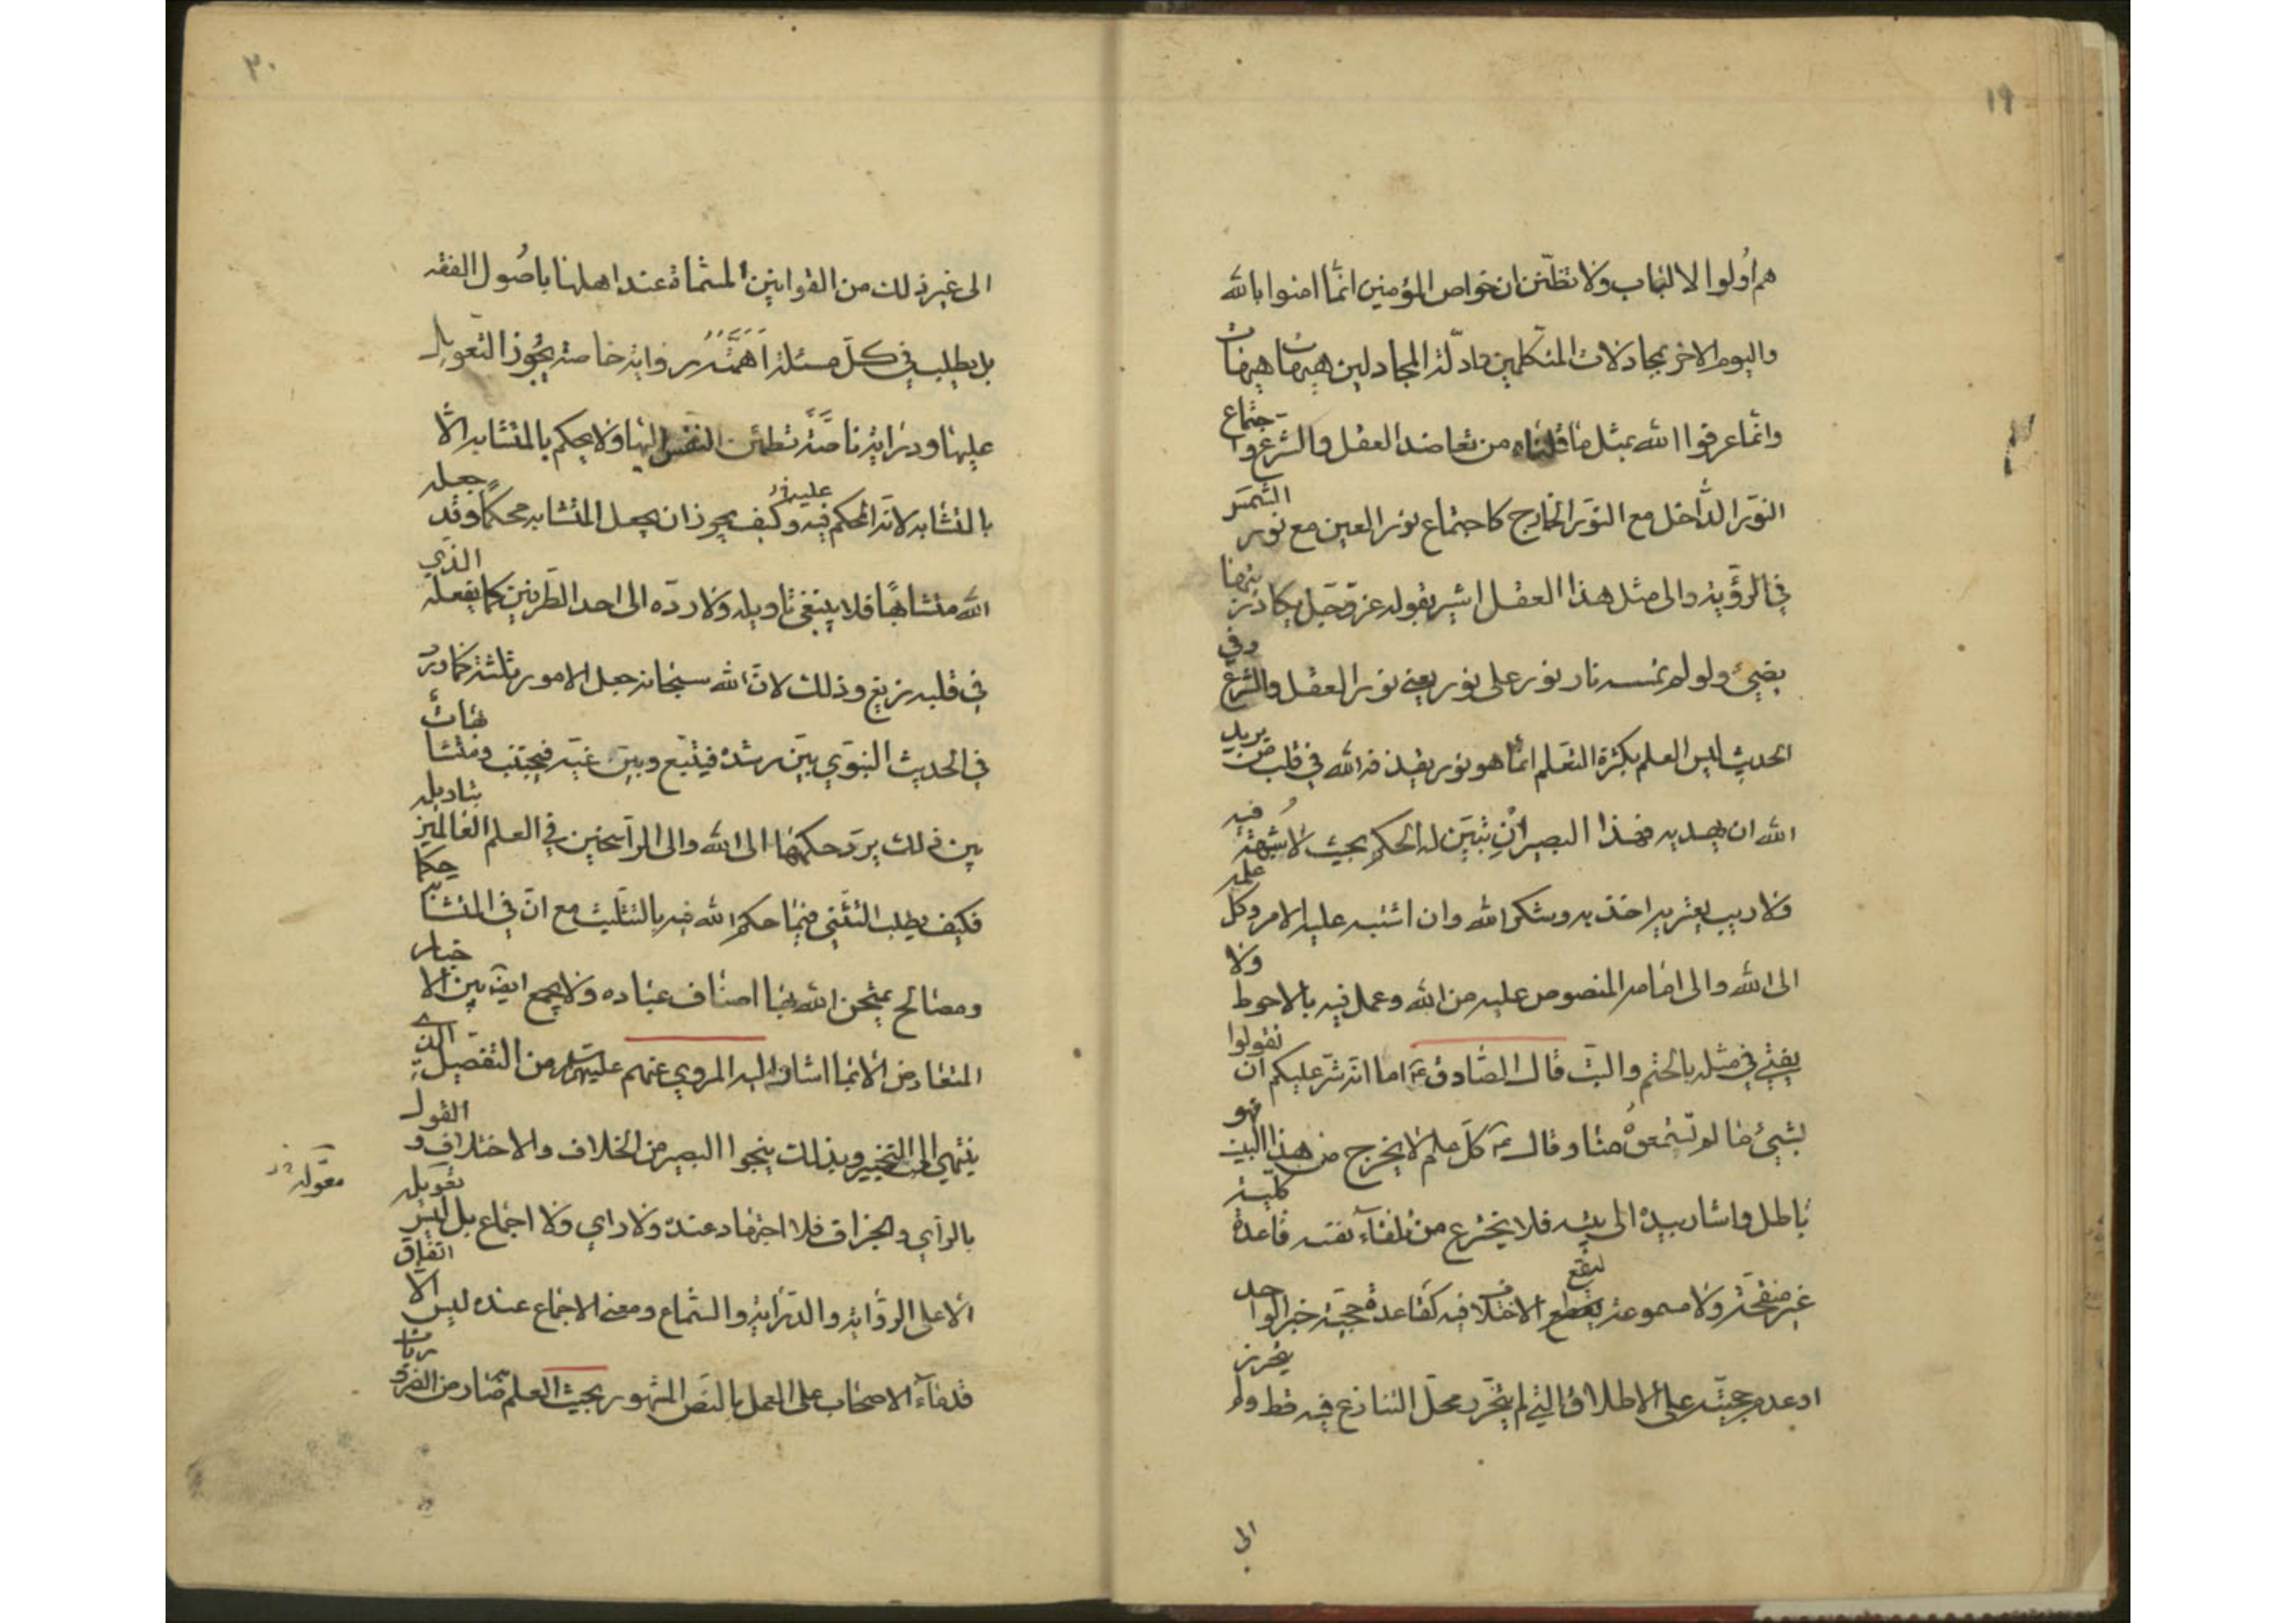 ١٩
هم اُولوا الالباب ولا تظنّن ان خواص المؤمنين انّما امنوا بالله
واليوم الاخر بمجادلات المتكلمين وادلّة المجادلين هيهات هيهات
وانّما عرفوا الله بمثل ما قلناه من تعاضد العقل والشرع واجتماع
النوّر الدّاخل مع النوّر الخارج كاجتماع نور العين مع نور الشمس
في الرؤية والى مثل هذا العقل اشير بقوله عز وجل يكاد زيتها
يضيئ ولو لم تمسسه نار نور على نور يعني نور العقل والشرع وفي
الحديث ليس العلم بكثرة التعلم انّما هو نور يقذفه الله في قلب من يريد
الله ان يهديه فهذا البصير اِن تبيّن له الحكم بحيث لا شبهة فيه
ولا ريب يعتريه اخذ به ويشكر الله وان اشتبه عليه الامر وكل علمه
الى الله والى امامه المنصوص عليه من الله وعمل فيه بالاحوط ولا
يفتي في مثله بالحتم والبتّ قال الصّادق ع اما انّه شرّ عليكم ان تقولوا
بشيئ ما لم تسمعوهُ منّا وقال ع كلّ علم لا يخرج من هذا البيت فهو
باطل واشار بيده الى بيته فلا يخترع من تلقاء نفسه قاعدة كليّة
غير منقحة ولا مسموعة ليقع الاختلاف فيه كقاعدة حجيّة خبر الواحد
او عدم حجيّته على الاطلاق التي لم يتحرّر محلّ التنازع فيه قط ولم يتحرز
الى
٣٠
الى غير ذلك من القوانين المسمّاة عند اهلها باصُول الفقه
بل يطلب في كلّ مسئلة اهمّته رواية خاصة يجُوز التعويل
عليها ودراية ناصّة تطمئن النفس اليها ولا يحكم بالمتشابه الّا
بالتشابه لانّه المحكم فيه وكيف يجوز ان يجعل المتشابه محكمًا وقد جعله
الله متشابهًا فلا ينبغي تاويله ولا ردّه الى احد الطّرفين كما يفعله الذي
في قلبه زيغ وذلك لانّ الله سبحانه جعل الامور ثلثة كما ورد
في الحديث النبوّي بيّن رشده فيتبع وبيّن غيّه فيجتنب ومتشابهات
بين ذلك يردّ حكمها الى الله والى الرّاسخين في العلم العالمين بتاويله
فكيف يطلب التثنّي فيما حكم الله فيه بالتثليث مع انّ في المتشابه حِكَمًا
ومصالح يمتحن الله بها اصناف عباده ولا يجمع ايضًا بين الاخبار
المتعارض الّا بما اشار اليه المروي عنهم عليهم من التفصيل الذي
ينتهي الى التخيير وبذلك ينجوا البصير من الخلاف والاختلاف و القول
بالرأي والجزاف فلا اجتهاد عنده ولا راي ولا اجماع بل ليس تعويله
معوّله
الّا على الرّواية والدّراية والسّماع ومعنى الاجماع عنده ليس الّا اتفاق
قدماء الاصحاب على العمل بالنّص المشهور بحيث العلم به صار من الضروريات